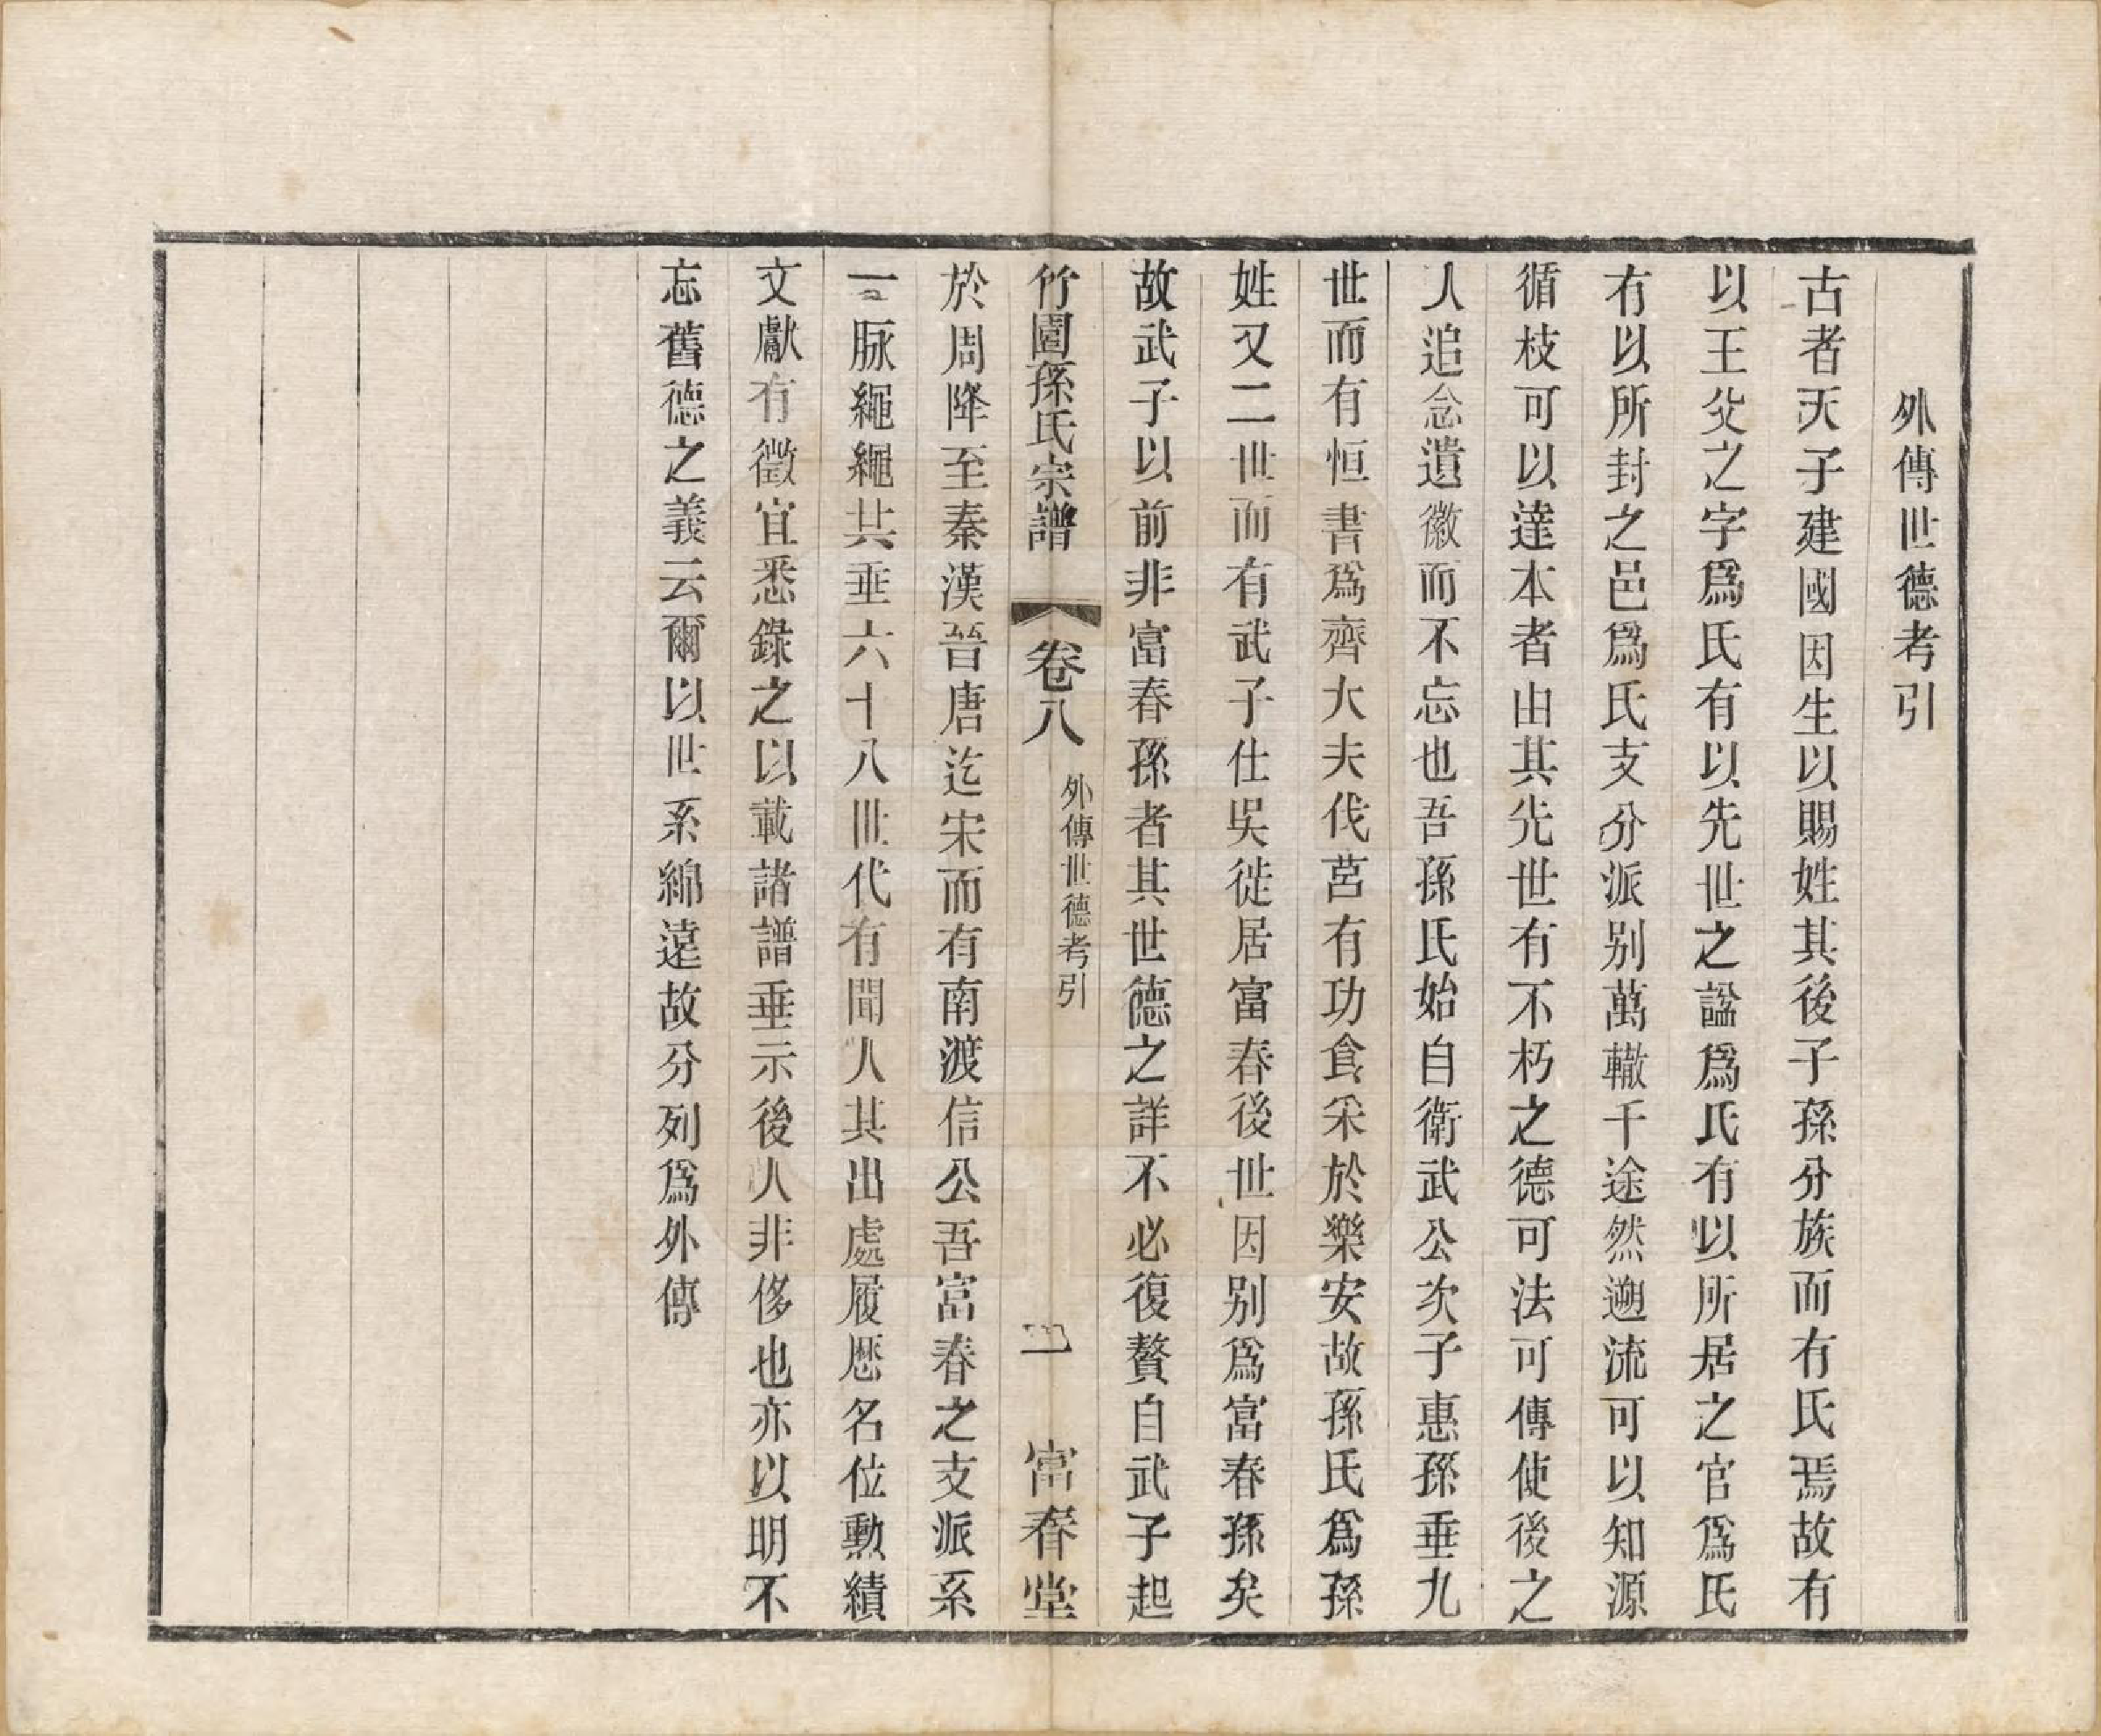 外傳世德考引
古者天子建國因生以賜姓其後子孫分族而有氏焉故有
以王父之字爲氏有以先世之諡爲氏有以所居之官爲氏
有以所封之邑爲氏支分派别萬轍千途然遡流可以知源
循枝可以達本者由其先世有不朽之德可法可傳使後之
人追念遺徽而不忘也吾孫氏始自衛武公次子惠孫垂九
世而有恒書爲齊大夫伐莒有功食采於樂安故孫氏爲孫
姓又二世而有武子仕吳徙居富春後世因别爲富春孫矣
故武子以前非富春孫者其世德之詳不必復贅自武子起
竹園孫氏宗譜
卷八
外傳世德考引
一
富春堂
於周降至秦漢晉唐迄宋而有南渡信公吾富春之支派系
一脉繩繩共垂六十八世代有聞人其出處履歷名位勲績
文獻有徵宜悉錄之以載諸譜垂示後人非侈也亦以明不
忘舊德之義云爾以世系綿遠故分列爲外傳